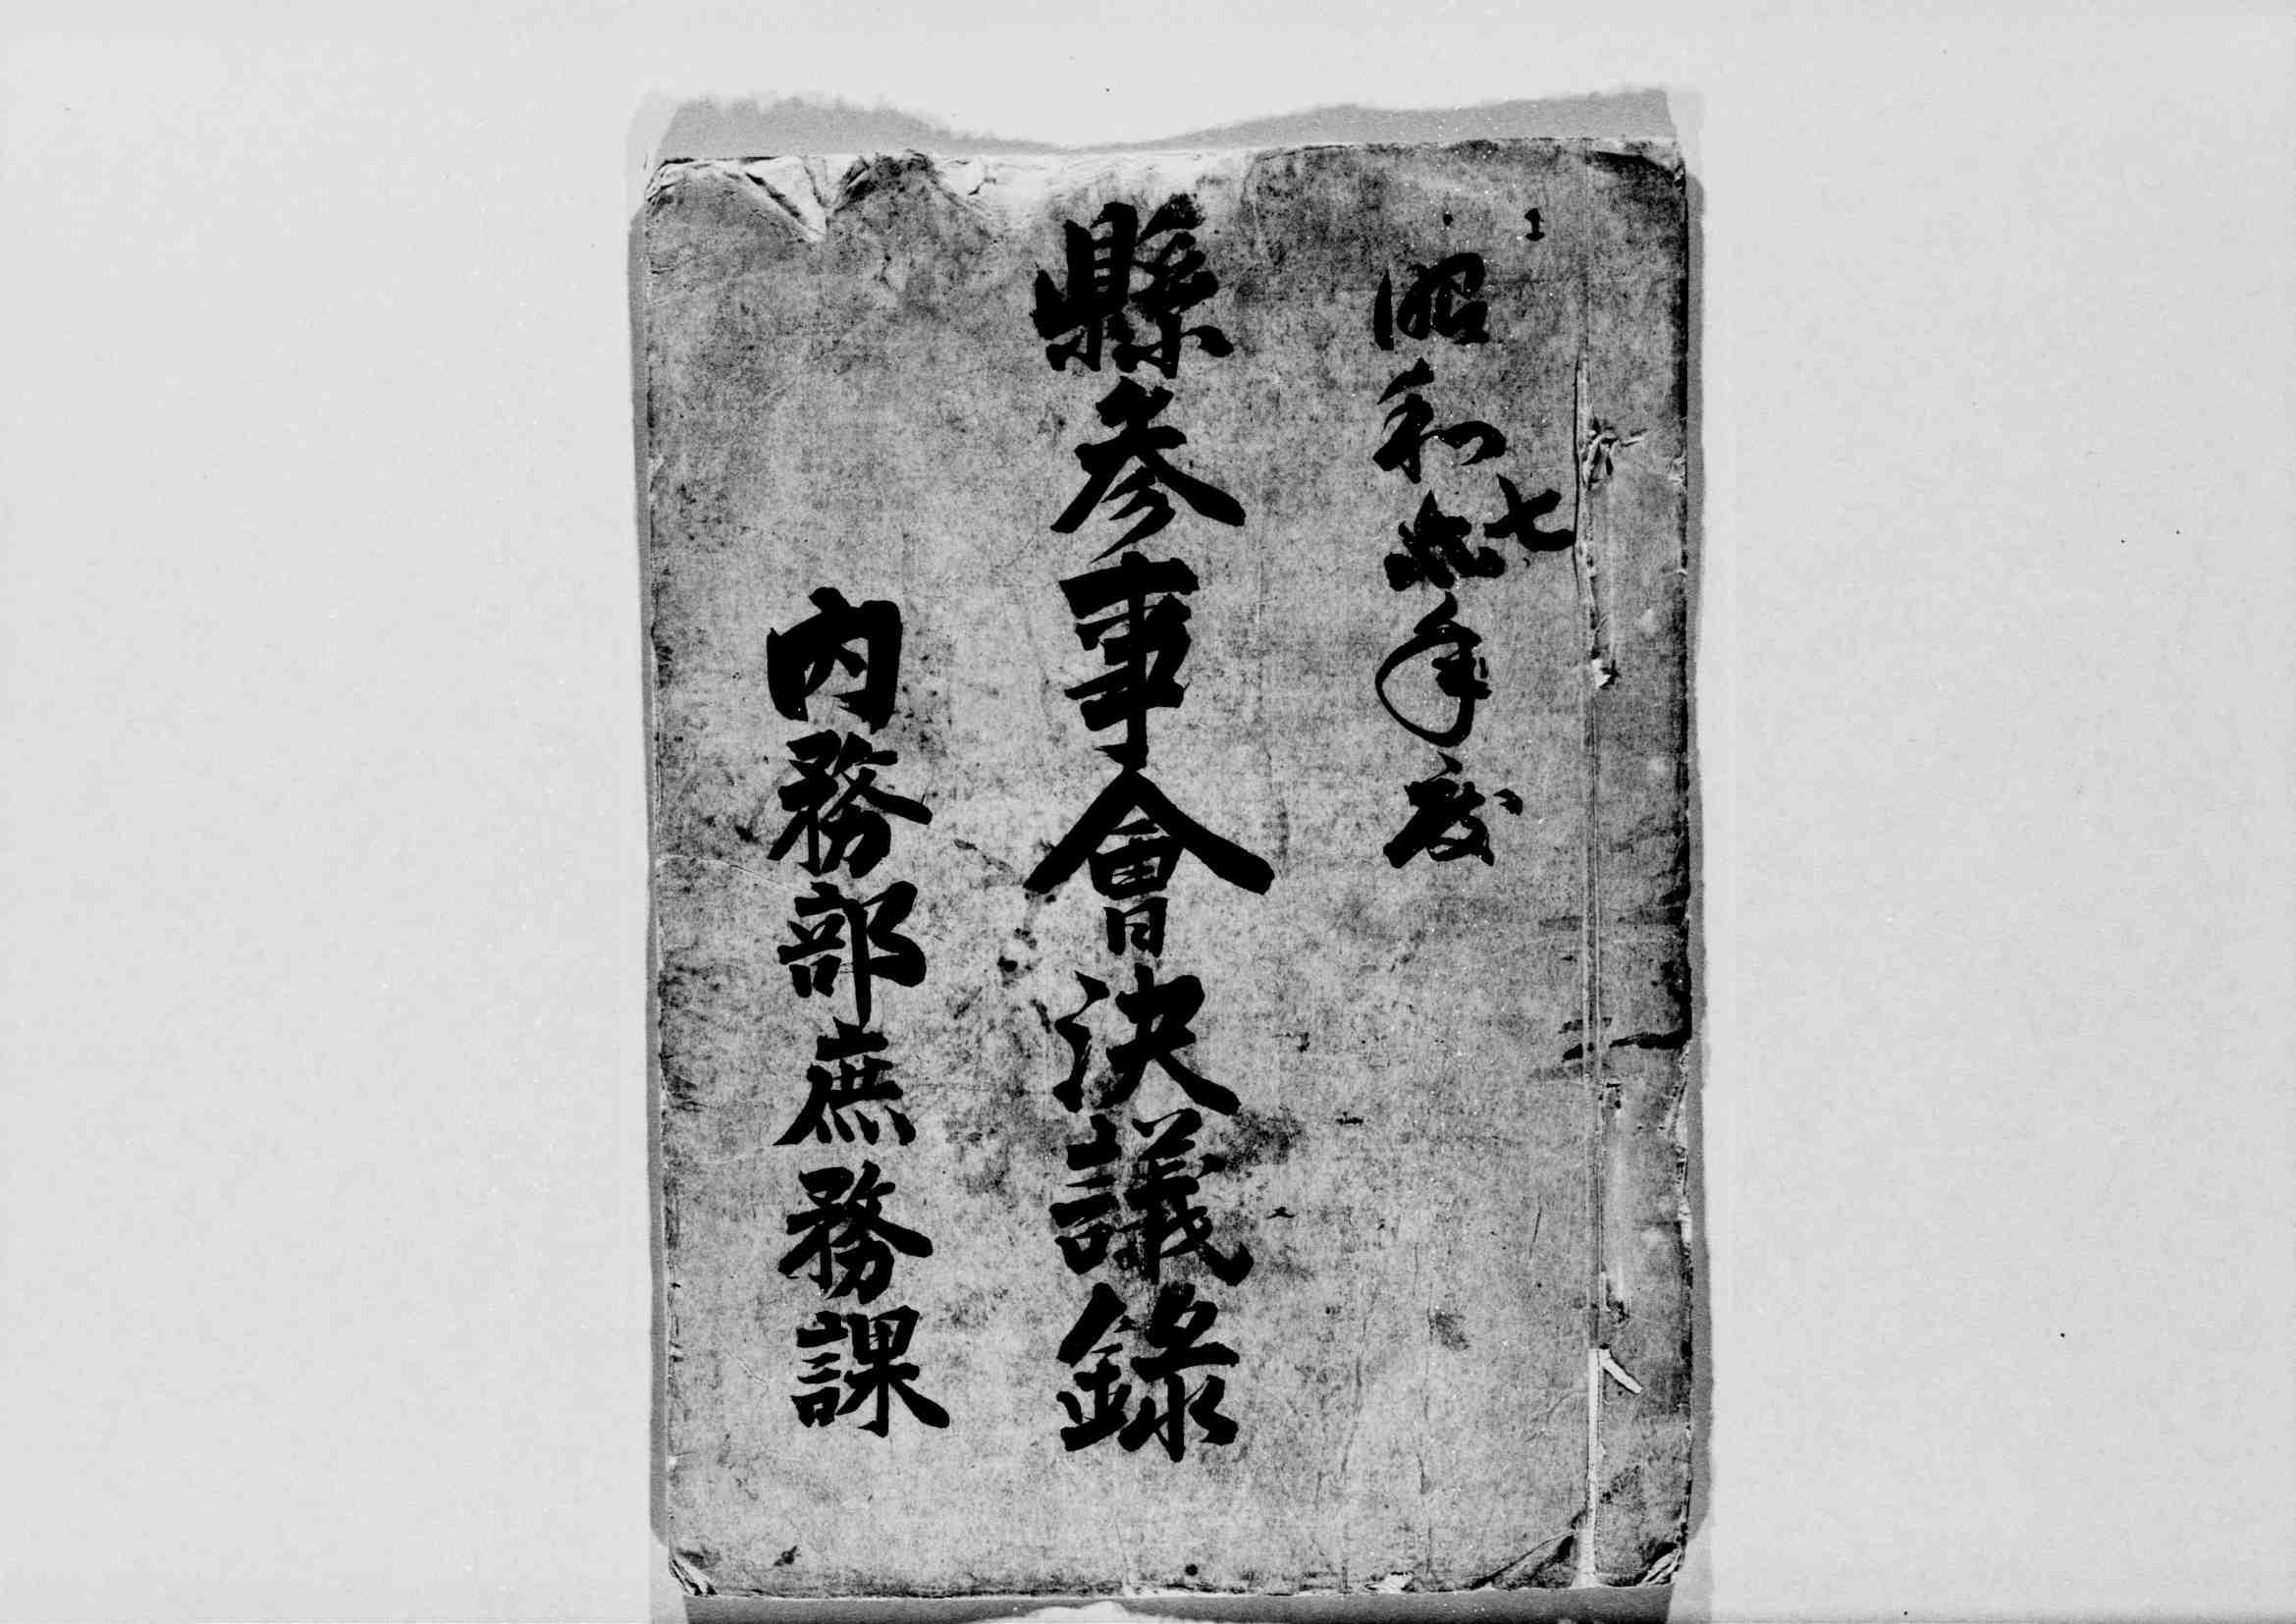 昭和七年度
縣参事會決議錄
內務部庶務課